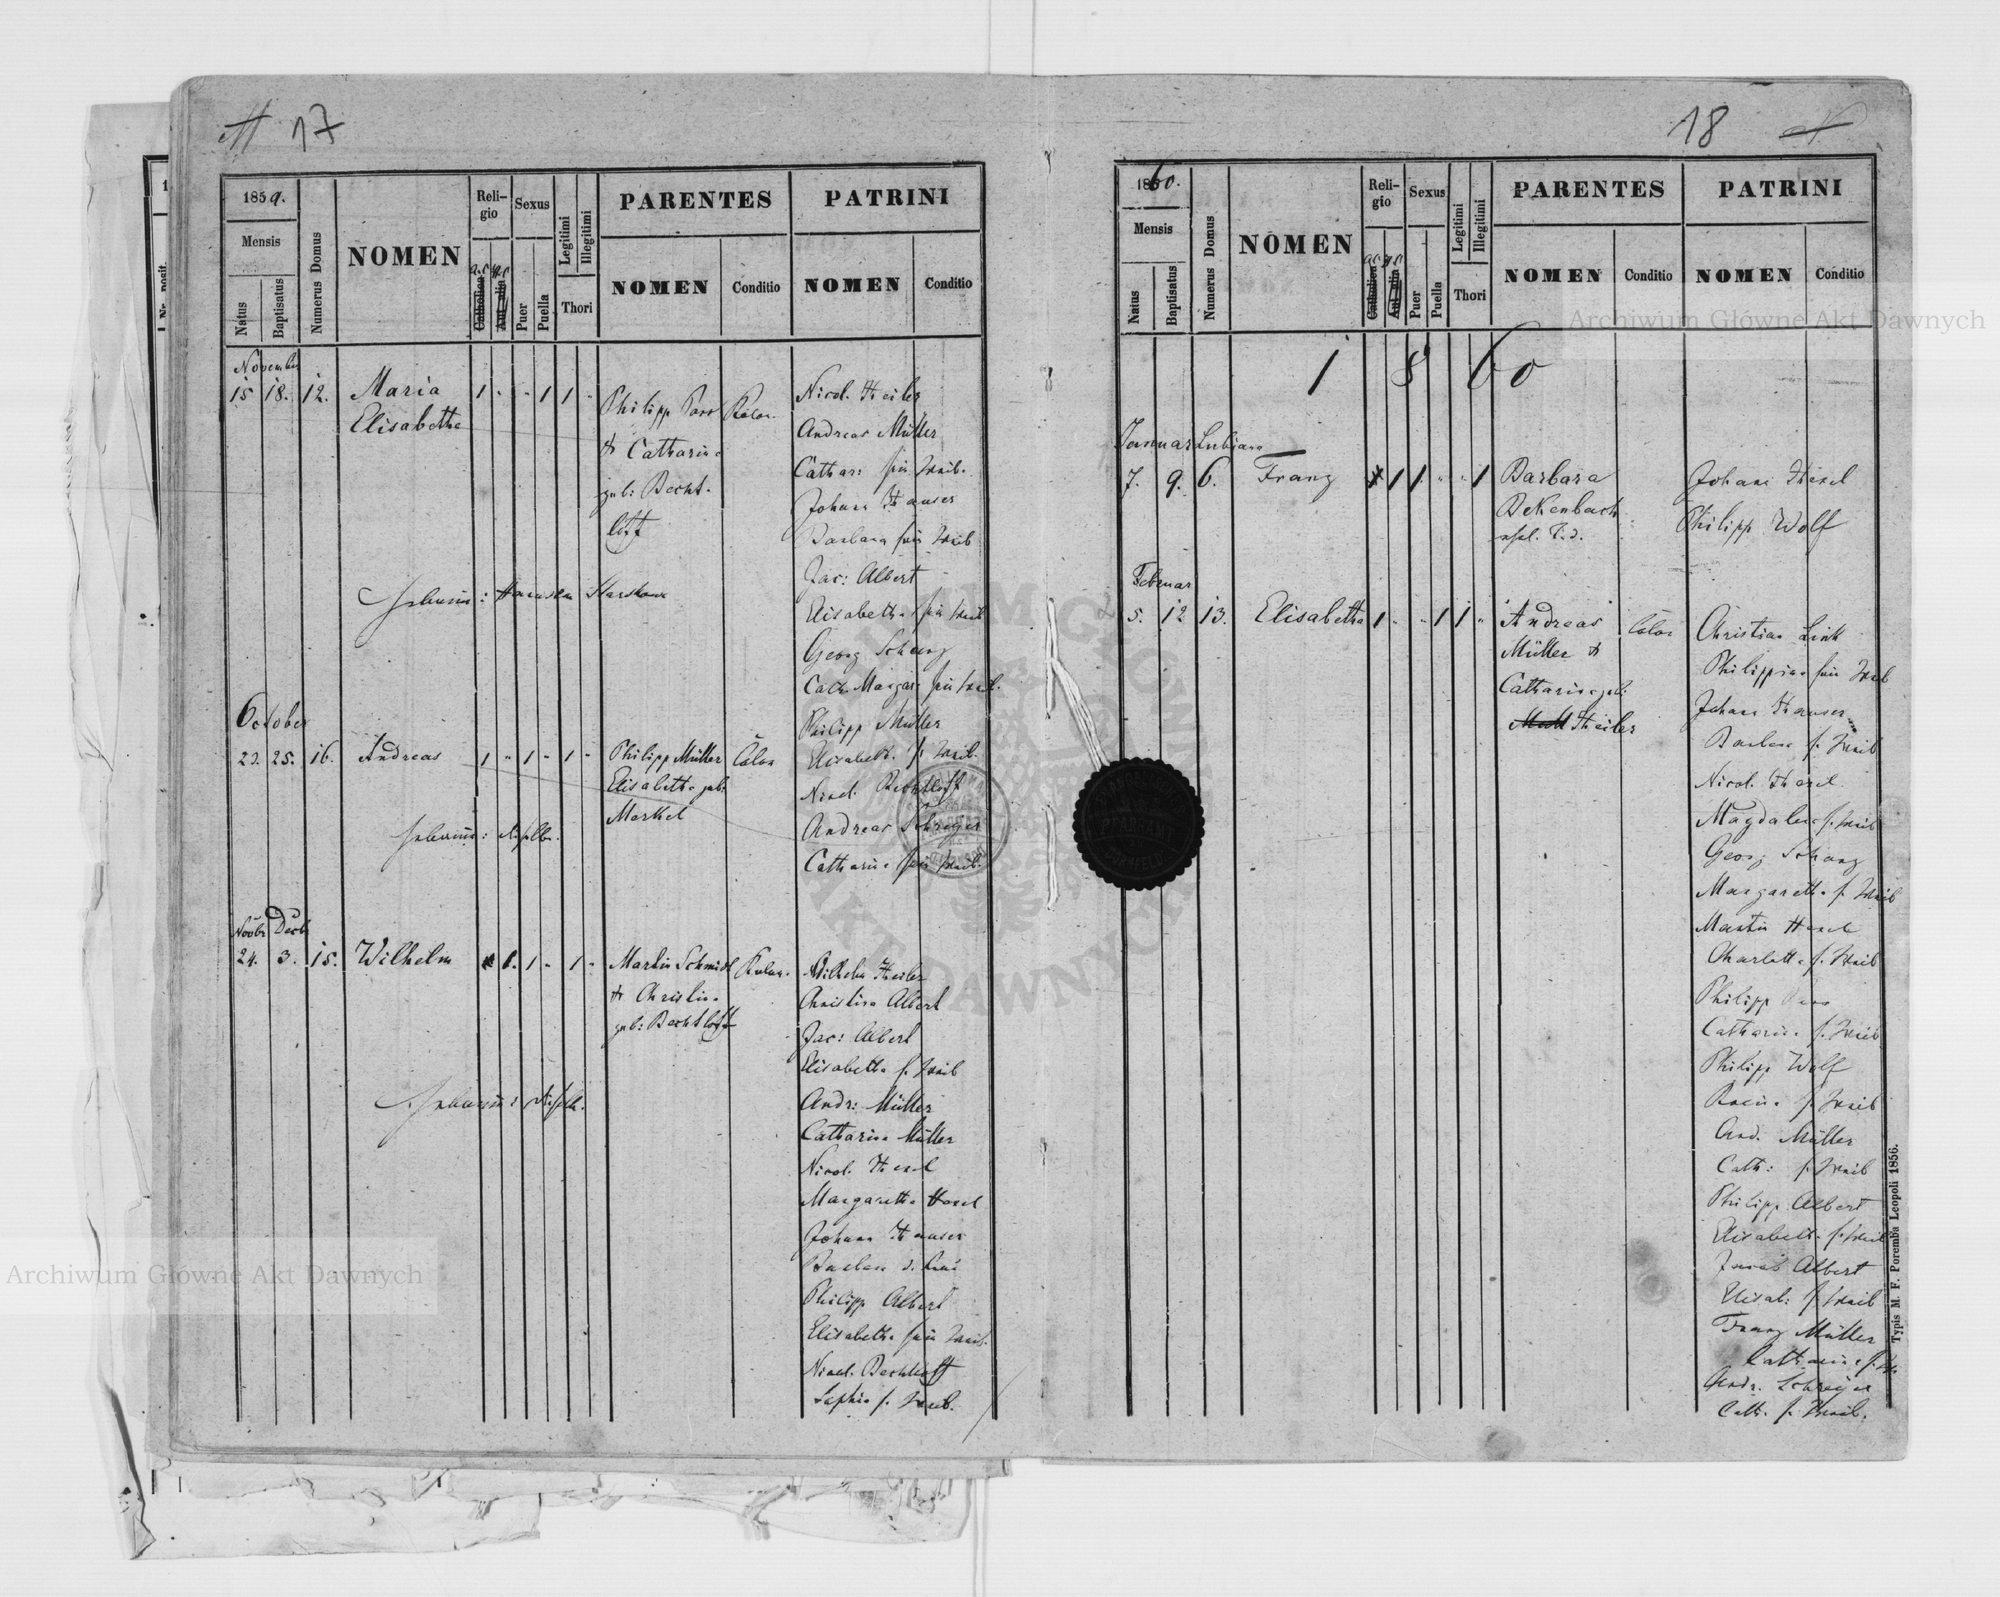 17
1859.
Mensis
Natus
Baptisatus
Numerus Domus
NOMEN
Reli-
gio
Catholica
Aut alia
Sexus
Puer
Puella
Legitimi
Illegitimi
Thori
PARENTES
NOMEN
Conditio
PATRINI
NOMEN
Conditio
November
15 18. 12. Maria 1 " " 1 1 "
Elisabetha
Philipp
& Catharina
geb: Becht-
loff
Nicol. Theiler
Andreas Müller
Cathar: sein Weib.
Johann Hauser
Barbara sein Weib
Jac: Albert
Elisabetha sein Weib
Georg Schanz
Cath. Margar. sein Weib.
Hebamme:
October
23. 25. 16. Andreas 1 " 1 " 1 "
Philipp Müller Colon
Elisabetha geb:
Merkel
Philipp Müller
Elisabeth. s. Weib.
Nicol. Bechtloff
Andreas Schreyer
Catharina sein Weib.
Hebamme: dieselbe.
Novbr Decbr
24. 3. 15. Wilhelm 1. 1 " 1 "
Martin Schmidt Kolon.
& Christina
geb: Bechtloff
Wilhelm Theiler
Christina Albert
Jac: Albert
Elisabetha s. Weib
Andr: Müller
Catharina Müller
Nicol. Hexel
Margaretha Hexel
Johann Hauser
Barbara
Philipp Albert
Elisabetha sein Weib.
Nicol. Bechtloff
Sophia s. Weib.
Hebamme: dieselbe.
18
1860.
Mensis
Natus
Baptisatus
Numerus Domus
NOMEN
Reli-
gio
Catholica
Aut alia
Sexus
Puer
Puella
Legitimi
Illegitimi
Thori
PARENTES
NOMEN
Conditio
PATRINI
NOMEN
Conditio
1 8 6 0
Januar
7. 9. 6. Franz 1 1 " " 1
Barbara
Bekenbach
Johann Hexel
Philipp Wolf
Februar
5. 12 13. Elisabetha 1 " " 1 1 "
Andreas Colon
Müller &
Catharina geb:
Theiler
Christian Link
Philippina sein Weib
Johann Hauser
Barbara s. Weib
Nicol. Hexel
Magdalena s. Weib
Georg Schanz
Margaretha s. Weib
Martin Hexel
Charlotta s. Weib
Philipp
Catharina s. Weib
Philipp Wolf
s. Weib
And. Müller
Cath: s. Weib
Philipp Albert
Elisabeth s. Weib
Jacob Albert
Elisab: s. Weib
Franz Müller
Catharina s. W.
Andr. Schreyer
Cath. s. Weib.
Typis M. F. Poremba Leopoli 1856.
Archiwum Główne Akt Dawnych
Archiwum Główne Akt Dawnych